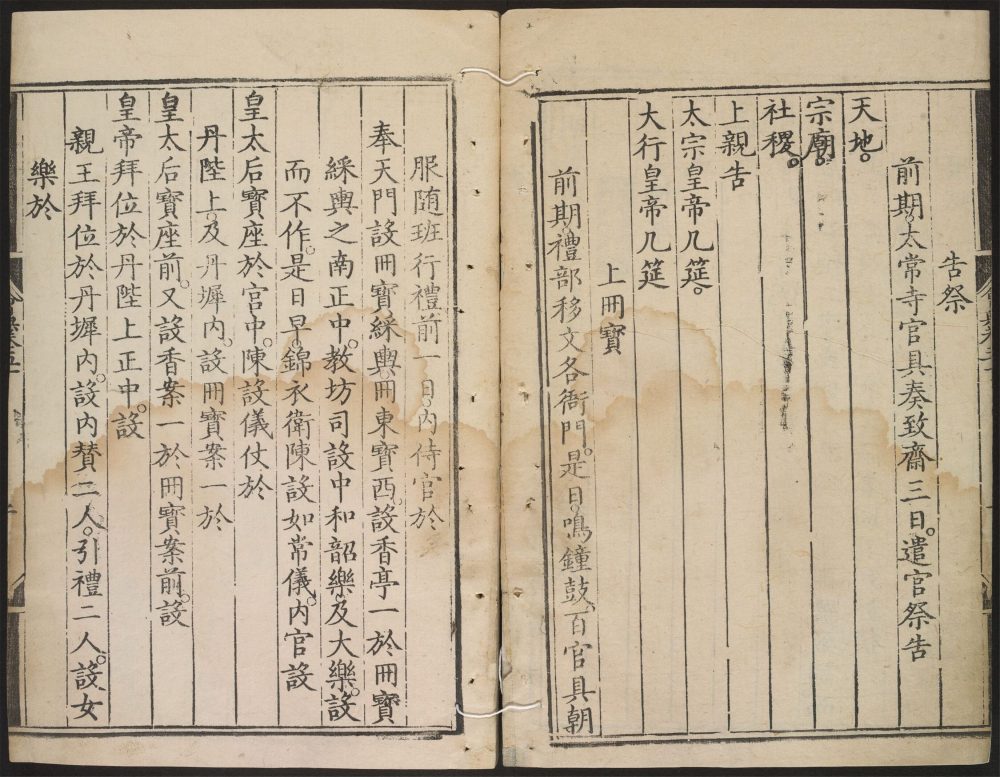 告祭
前期。太常寺官具奏致齋三日。遣官祭告
天地。
宗廟。
社稷。
上親告
太宗皇帝几筵。
大行皇帝几筵
上冊寶
前期。禮部移文各衙門。是日。鳴鐘鼓。百官具朝
服隨班行禮前一日。內侍官於
奉天門設冊寶綵輿。冊東寶西。設香亭一於冊寶
綵輿之南正中。教坊司設中和韶樂。及大樂。設
而不作。是日早。錦衣衛陳設如常儀。內官設
皇太后寶座於宮中。陳設儀仗於
丹陛上。及丹墀內。設冊寶案一於
皇太后寶座前。又設香案一於冊寶案前。設
皇帝拜位於丹陛上正中。設
親王拜位於丹墀內。設內贊二人。引禮二人。設女
樂於